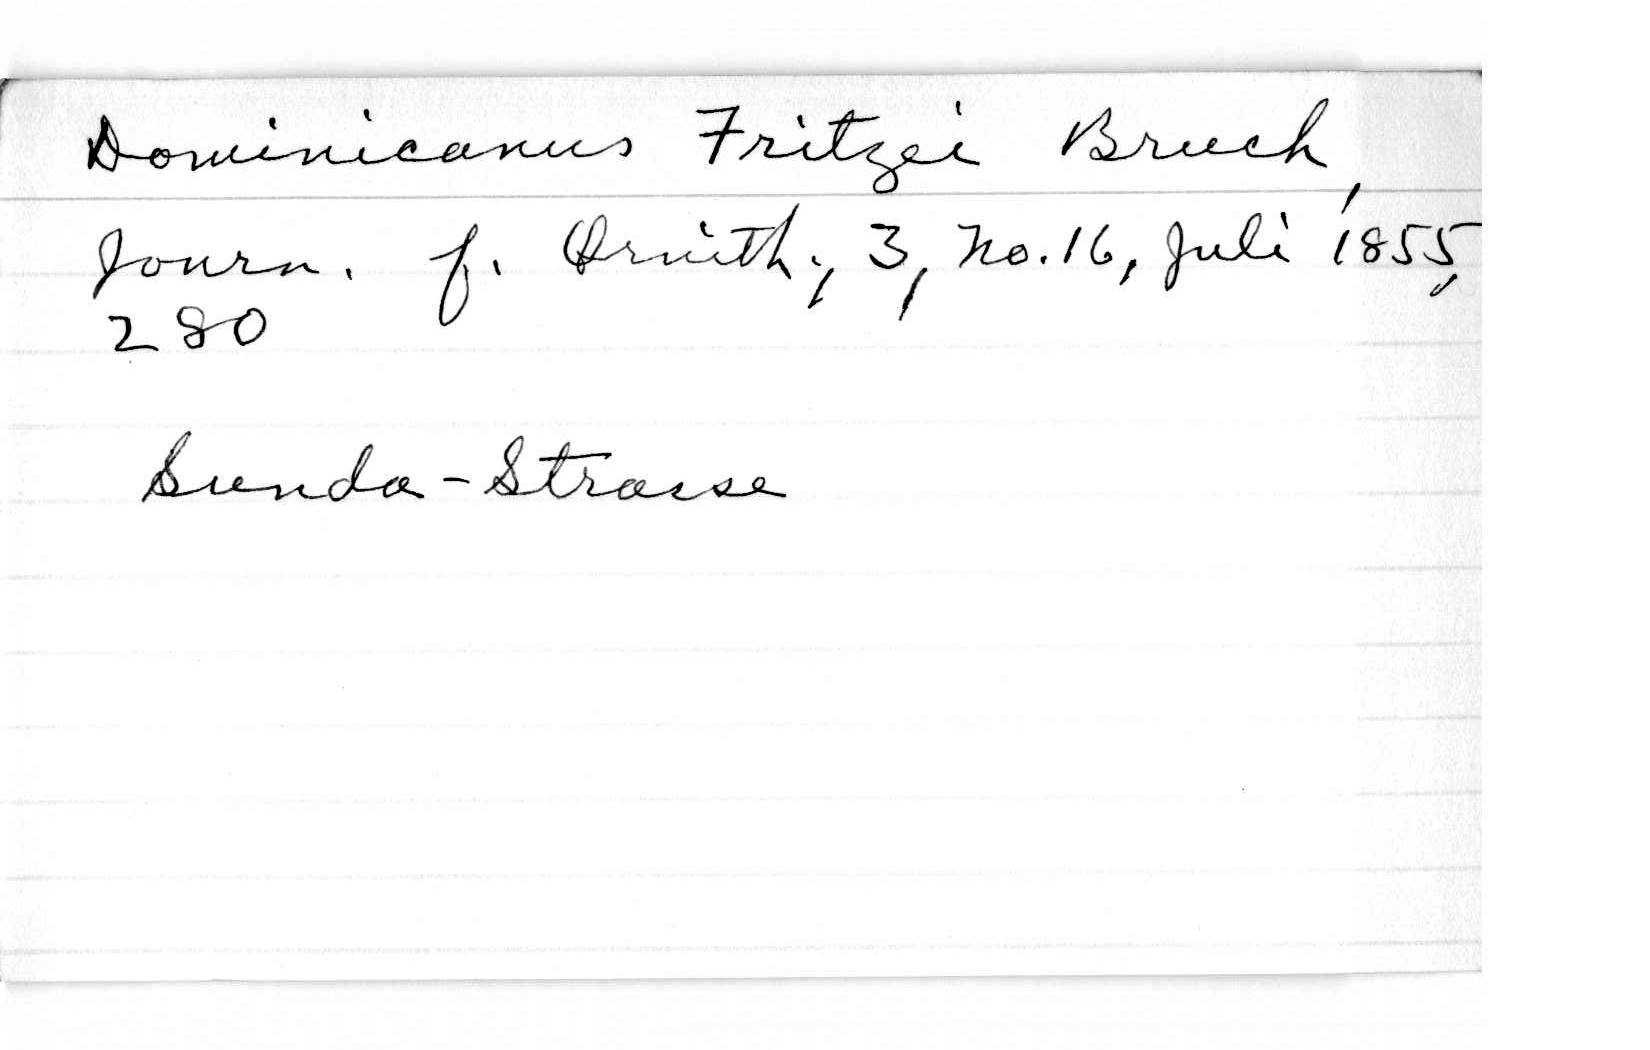 Dominicanus Fritzei Bruch,
Journ. f. Ornith., 3, no. 16, Juli 1855,
280
Sunda-Strasse